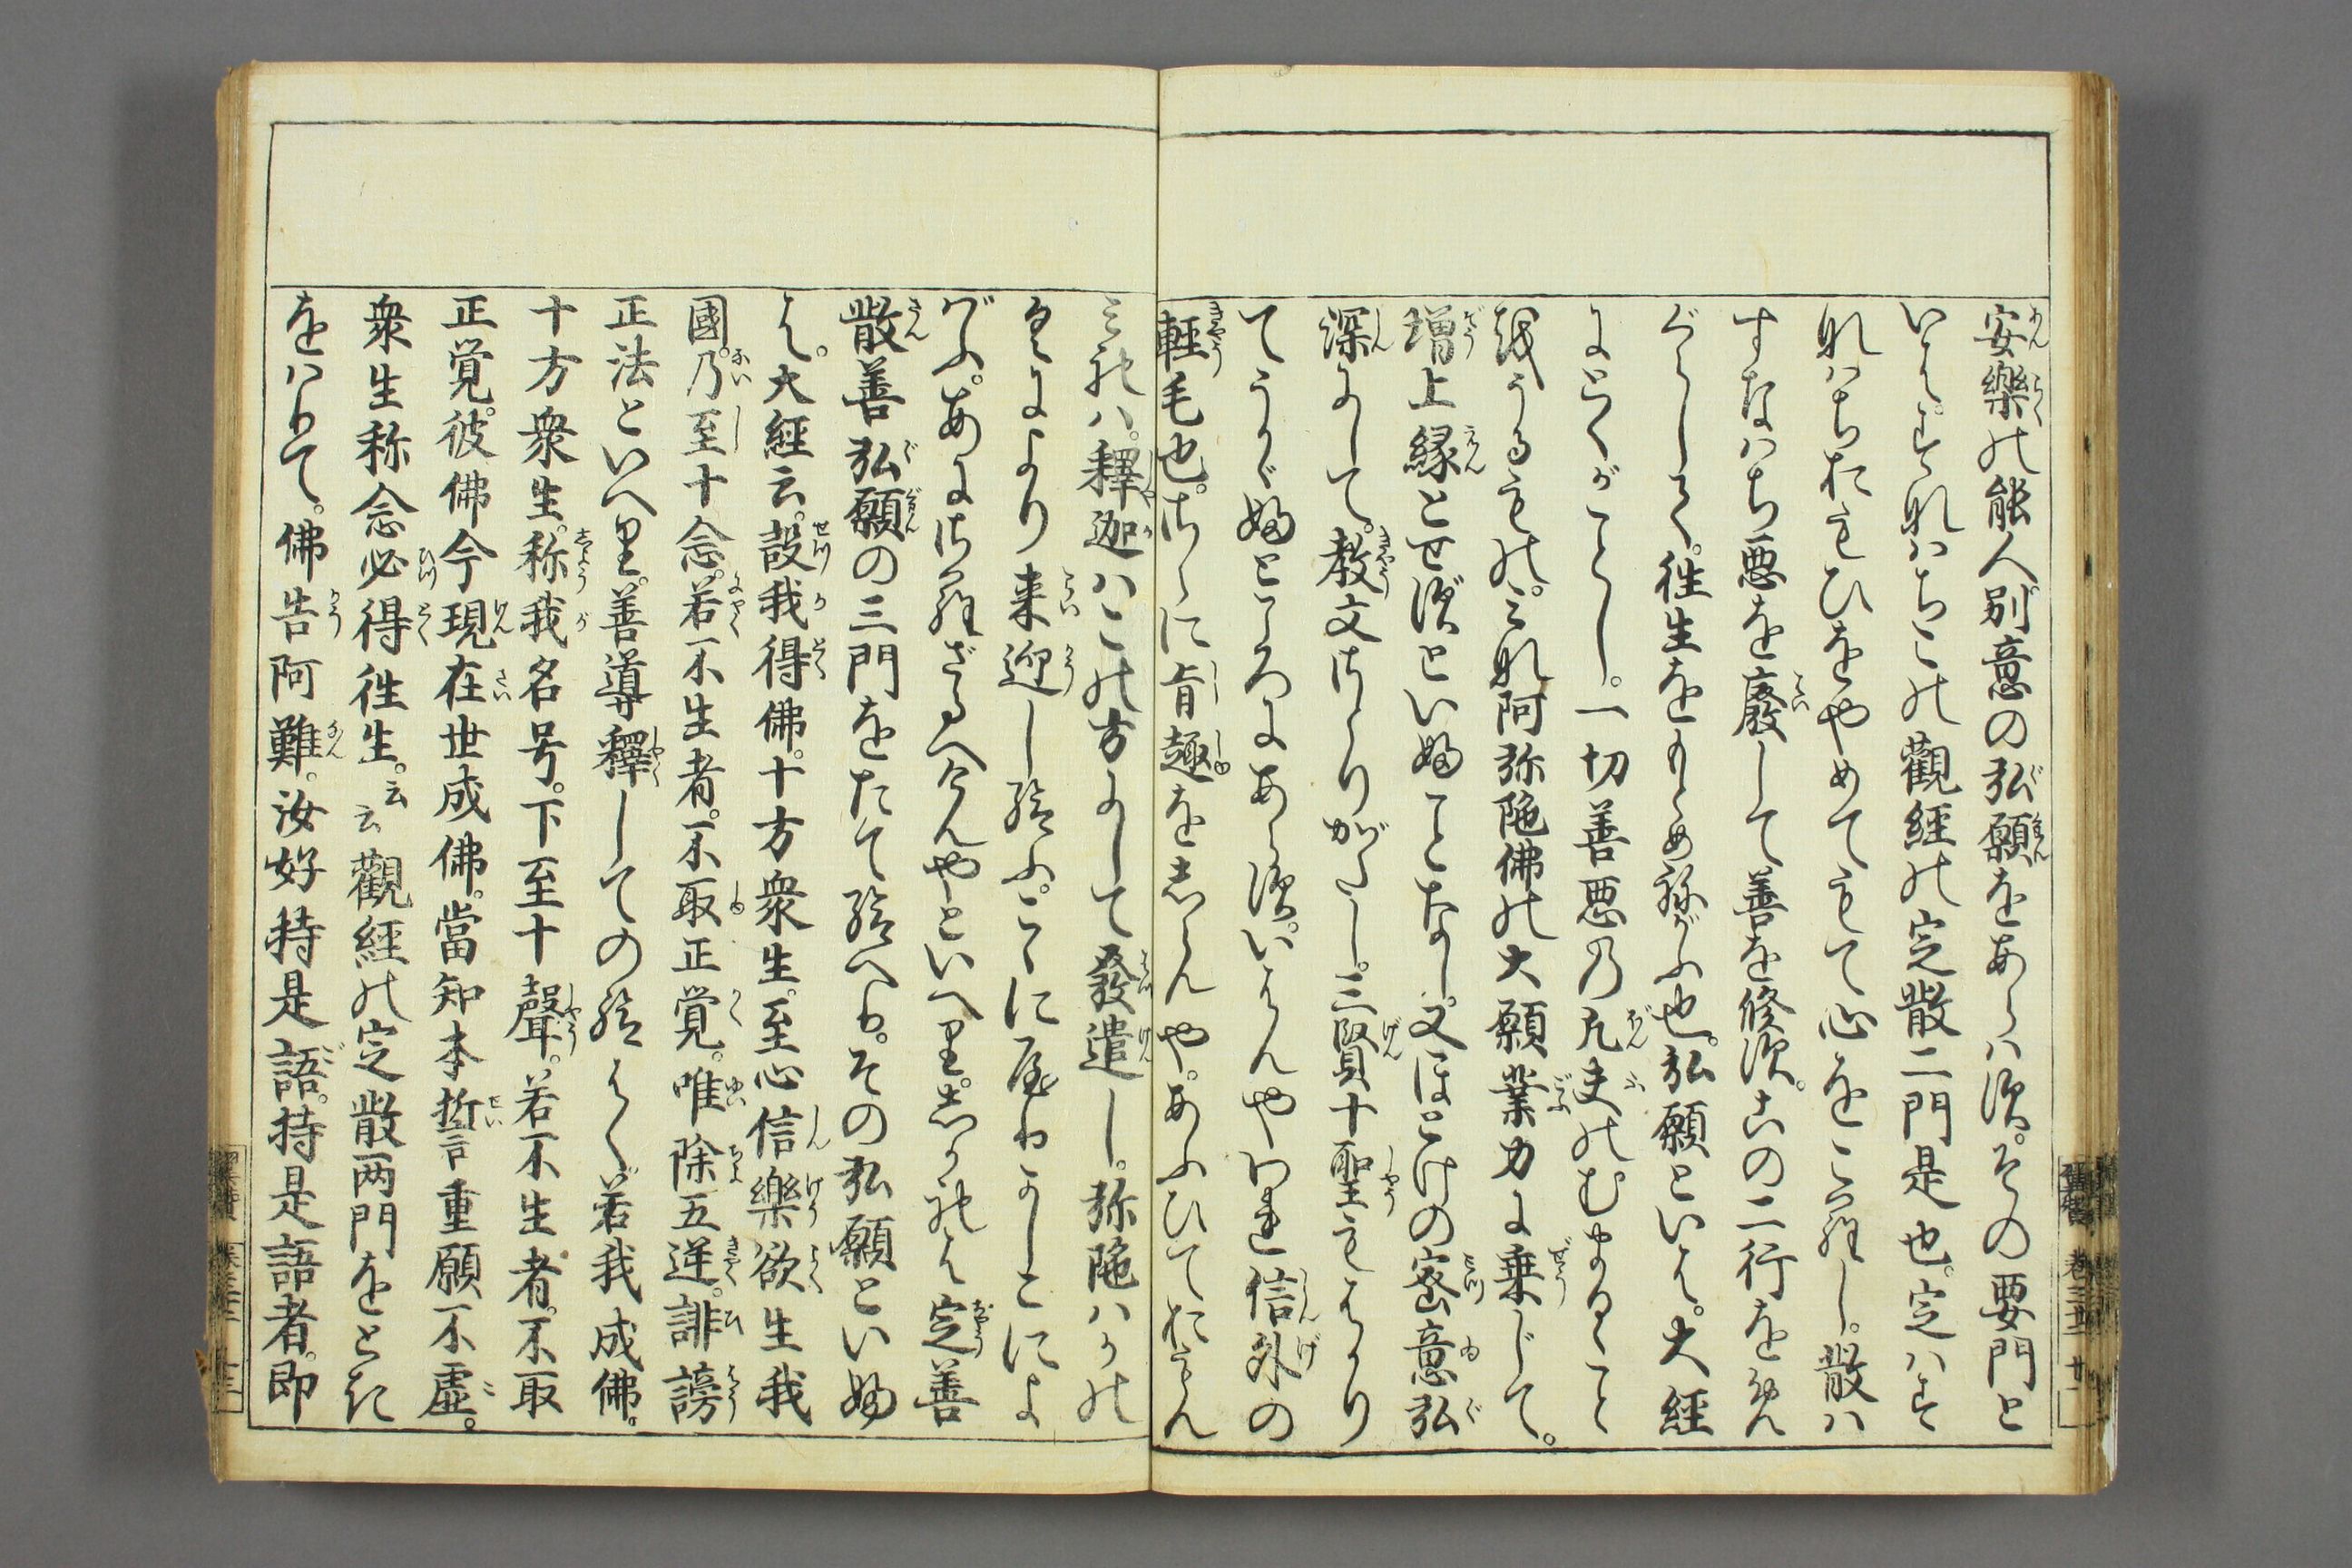 安樂の能人別意の弘願をあらはす。その要門と
いふは、すなはちこの觀經の定散二門是也。定は
すなはちおもひをやめてもて心をこらし。散は
すなはち悪を廢して善を修す。この二行を
めぐらして。徃生をもとめねがふ也。弘願といふは。大經
にとくがごとし。一切善悪の凡夫のむまるゝこと
をうるもの。みな阿弥陁佛の大願業力に乗じて。
増上縁とせずといふことなし。又ほとけの密意弘
深にして。教文さとりがたし。三賢十聖もはかり
てうかゞふところにあらず。いはんやわれ信外の
輕毛也。さらに旨趣をしらんや。あふひておもん
みれハ。釋迦ハこの方にして發遣し。弥陁ハかの
くによより来迎し給ふ。こゝにやりかしこによ
ばふ。あにさらざるへけんやといへり。しかれは定善
散善弘願の三門をたて給へり。その弘願といふ
は。大經云。設我得佛。十方衆生。至心信樂欲生我
國。乃至十念。若不生者。不取正覚。唯除五逆。誹謗
正法といへり。善導釋しての給はく。若我成佛。
十方衆生。称我名号。下至十聲。若不生者。不取
正覚。彼佛今現在世成佛。當知本誓重願不虚。
衆生称念必得徃生。云云觀經の定散两門をとき
をハりて。佛告阿難。汝好持是語。持是語者。即